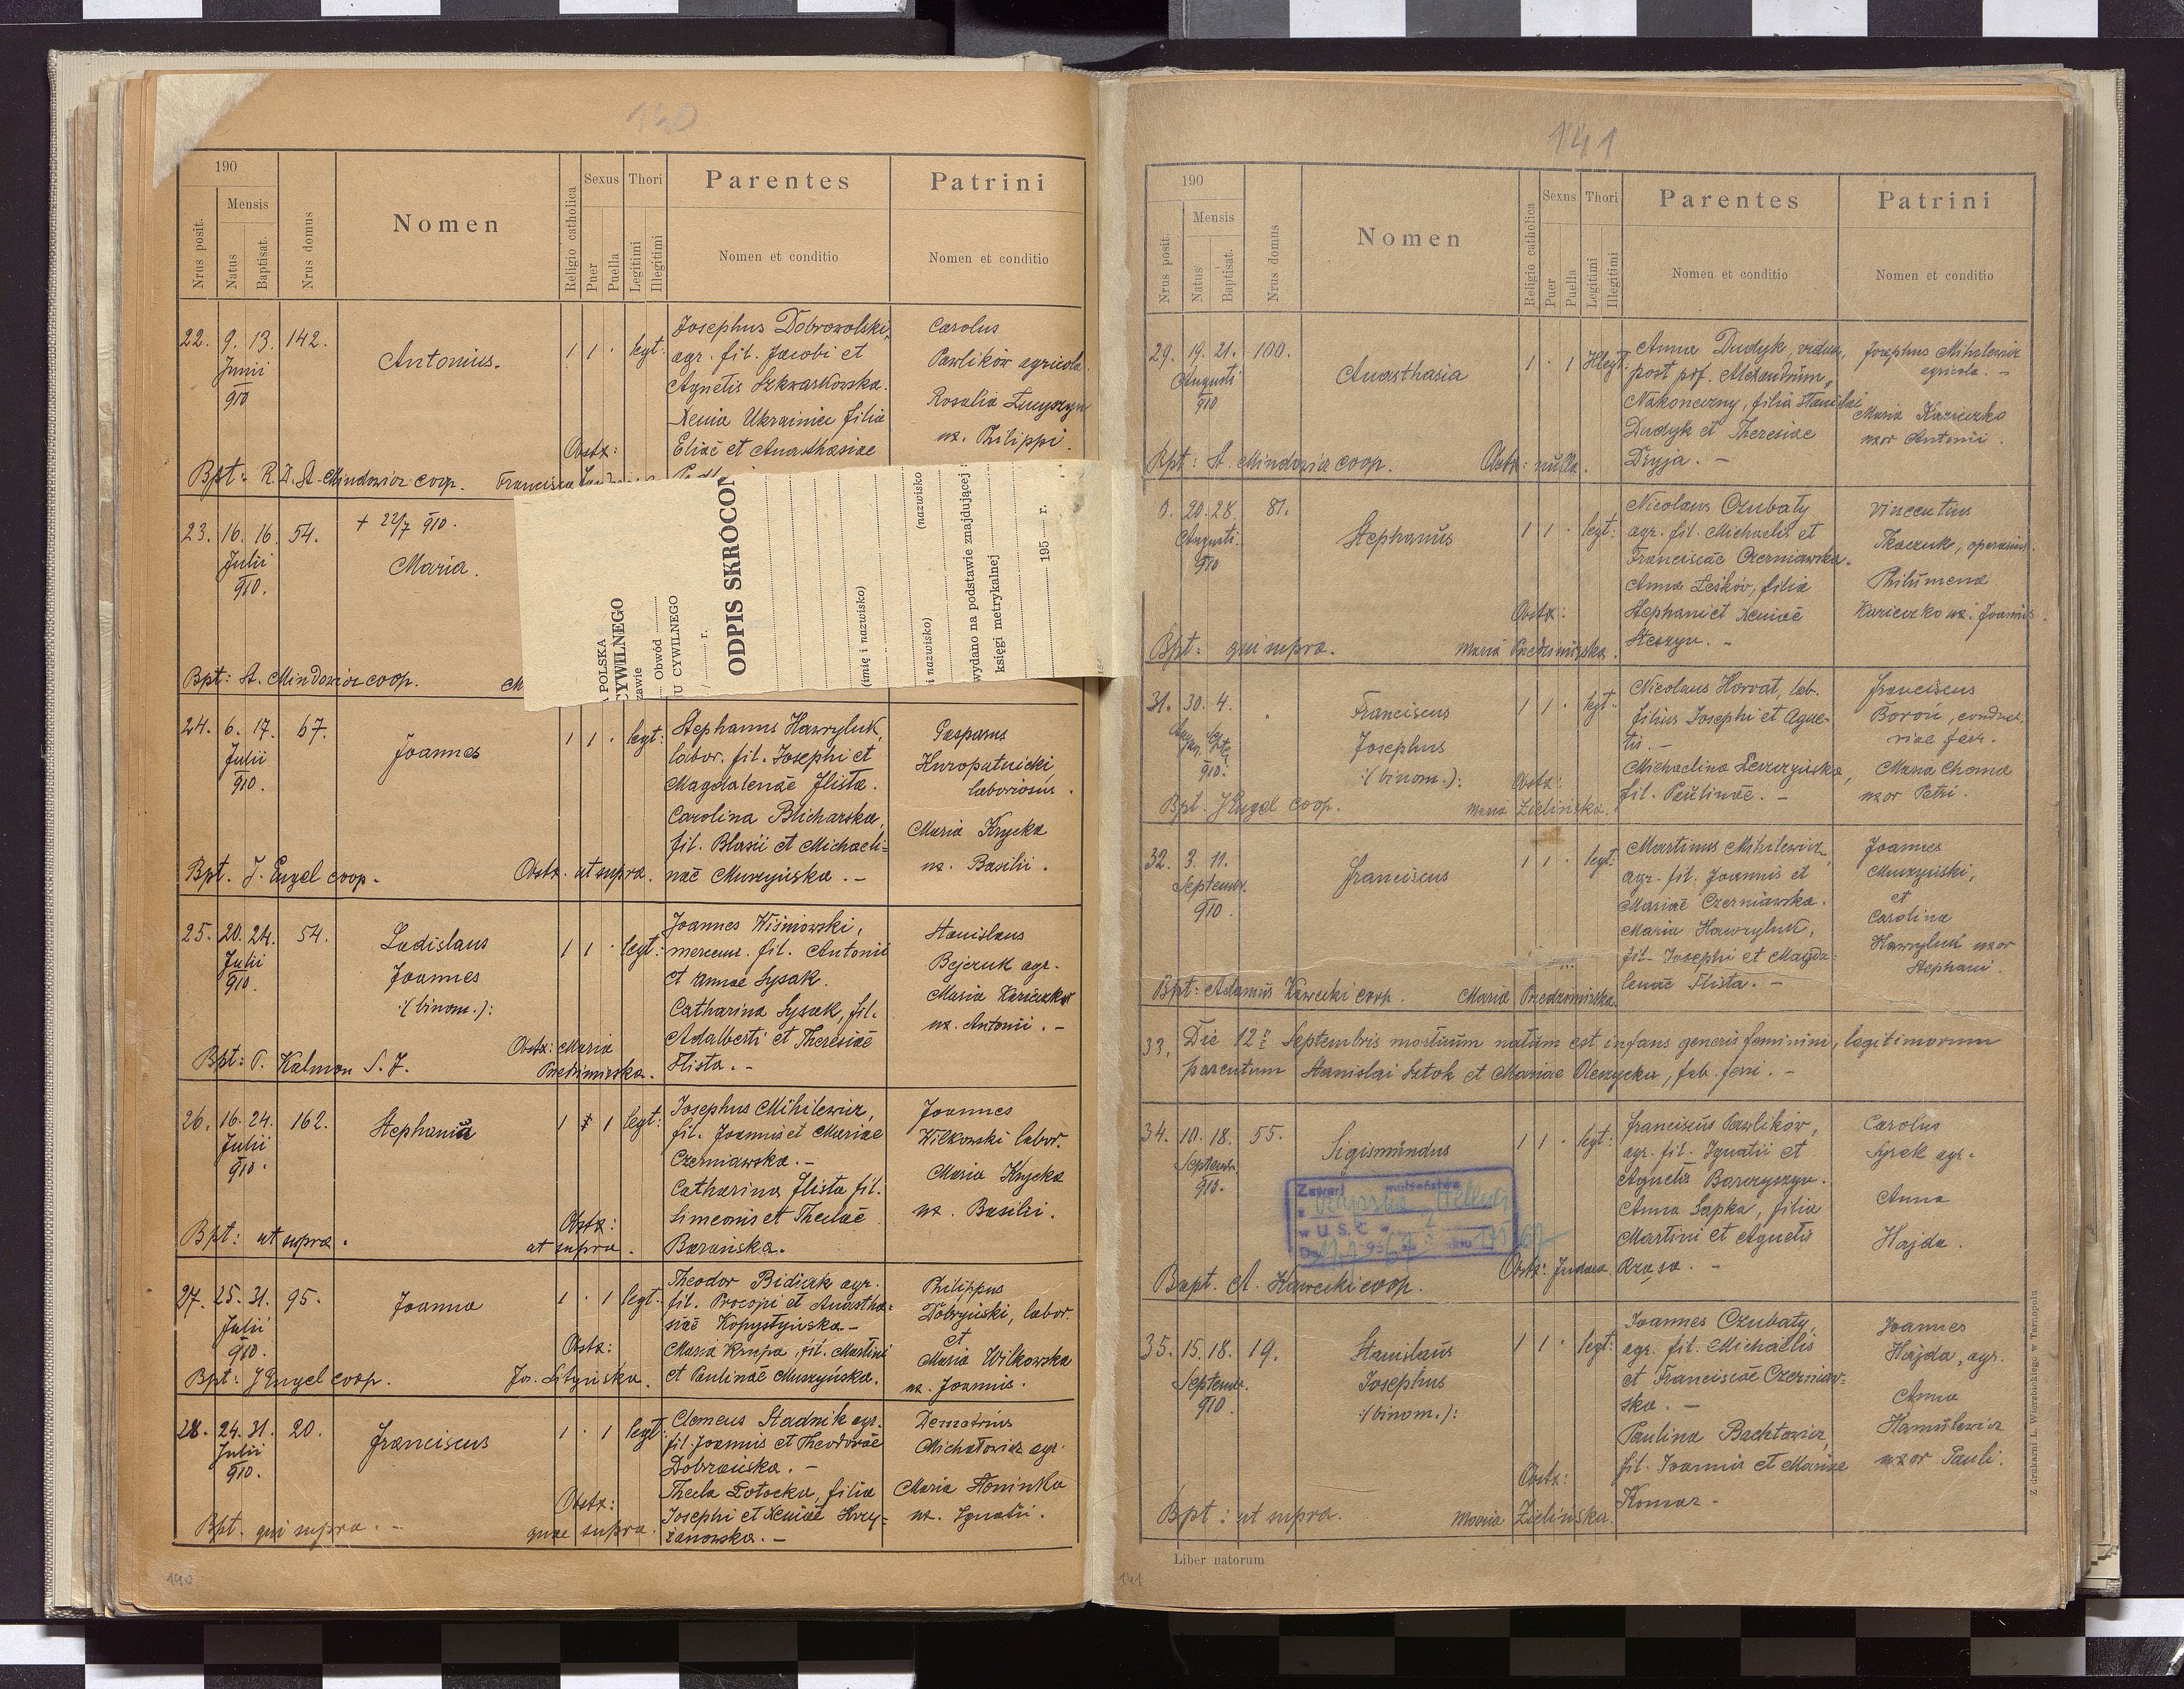 140
190
Nrus posit.
Mensis
Natus
Baptisat.
Nrus domus
Nomen
Religio catholica
Sexus
Puer
Puella
Thori
Legitimi
Illegitimi
Parentes
Nomen et conditio
Patrini
Nomen et conditio
22. 9. 13. 142.
Junii
910
Antonius.
1 1 · legt:
Josephus Dobrowolski,
agr. fil. Jacobi et
Agnetis Szkwarkowska.
Xenia Ukrainiec filia
Eliae et Anasthasiae
Carolus
Pawlików agricola
Rosalia
ux. Philippi.
Obstx:
Bpt: R. D. St. Mindowicz coop.
Francisca
23. 16. 16. 54.
Julii
910.
+ 22/7 910.
Maria.
Bpt: St. Mindowicz coop.
POLSKA
CYWILNEGO
Obwód
U CYWILNEGO
r.
ODPIS SKRÓCON
(imię i nazwisko)
(nazwisko
i nazwisko)
wydano na podstawie znajdującej
księgi metrykalnej
195 r.
24. 6. 17. 67.
Julii
910.
Joannes
1 1 · legt:
Stephanus Hawryluk,
labor. fil. Josephi et
Magdalenae Flista.
Carolina Blicharska,
fil. Blasii et Michaeli-
nae Muszyńska. -
Gasparus
Kuropatnicki,
laboriosus.
Maria Krycka
ux. Basilii.
Bpt. J. Engel coop.
Obstx. ut supra.
25. 20. 24. 54.
Julii
910.
Ladislaus
Joannes
:(binom.):
1 1 · legt:
Joannes Wiśniowski,
mercenr. fil. Antonii
et Annae Sysak.
Catharina Sysak, fil.
Adalberti et Theresiae
Flista. -
Stanislaus
Bejczuk agr.
Maria Kariczko
ux. Antonii. -
Obstx: Maria
Bpt: P. Kalman S. J.
26. 16. 24. 162.
Julii
910.
Stephania
1 1 legt:
Josephus Mihilewicz,
fil. Joannis et Mariae
Czerniawska. -
Catharina Flista fil.
Simeonis et Theclae
Barańska.
Joannes
Wilkowski labor.
Maria Krycka
ux. Basilii.
Obstx:
ut supra.
Bpt: ut supra.
27. 25. 31. 95.
Julii
910.
Joanna
1 · 1 legt:
Theodor Bidiak agr.
fil. Procopi et Anastha-
siae Kopystyńska. -
Maria Krupa, fil. Martini
et Paulinae Muszyńska.
Philippus
Dobryński, labor.
et
Maria Wilkowska
ux. Joannis.
Obstx:
Bpt: J Engel coop.
28. 24. 31. 20.
Julii
910.
Franciscus
1 · 1 legt:
Clemens Stadnik agr.
fil. Joannis et Theodorae
Dobrzańska. -
Thecla Potocka, filia
Josephi et Xeniae Hry-
żanowska. -
Demetrius
Michałowicz agr.
Maria Słoninka
ux. Ignatii.
Obstx:
quae supra.
Bpt. qui supra. -
140
141
190
Nrus posit.
Mensis
Natus
Baptisat.
Nrus domus
Nomen
Religio catholica
Sexus
Puer
Puella
Thori
Legitimi
Illegitimi
Parentes
Nomen et conditio
Patrini
Nomen et conditio
29. 19. 21. 100.
Augusti
910
Anasthasia
1 · 1
Anna Dudyk, vidua,
post pof. Alexandrum
Nakoneczny, filia Stanislai
Dudyk et Theresiae
Dryja. -
Josephus Mihilewicz
agricola. -
Maria Kariczko
uxor Antonii.
Bpt: St. Mindowicz coop.
Obstx: nulla.
0. 20. 28. 81.
Augusti
910
Stephanus
1 1 · legt:
Nicolaus Czubaty
agr. fil. Michaelis et
Franciscae Czerniawska.
Anna Leśków, filia
Stephani et Xeniae
Steczyn. -
Vincentius
Tkaczuk, operarius.
Philumena
Kariczko ux. Joannis.
Obstx:
Bpt: qui supra.
31. 30. 4.
910.
Franciscus
Josephus
:(binom.):
1 1 · legt:
Nicolaus Horvat, lab.
filius Josephi et Agne-
tis. -
Michaelina
fil. Paulinae. -
Franciscus
Boroń, conduct.
viae ferr.
Maria Choma
uxor Petri.
Obstx:
Maria Zielińska.
Bpt. J Engel coop.
32. 3. 11.
Septembr.
910.
Franciscus
1 1 · legt:
Martinus Mihilewicz,
agr. fil. Joannis et
Mariae Czerniawska.
Maria Hawryluk,
fil. Josephi et Magda-
lenae Flista. -
Joannes
Muszyński,
et
Carolina
Hawryluk uxor
Stephani.
Bpt: Adamus Kawecki coop.
Maria
33. Die 12a Septembris mortuum natum est infans generis feminini, legitimorum
parentum Stanislai Sztok et Mariae Oleszycka, fab. ferri. -
34. 10. 18. 55.
Septembr.
910.
Sigismundus
1 1 · legt:
Franciscus Pawlików,
agr. fil. Ignatii et
Agnetis Barczyszyn.
Anna Sapka, filia
Martini et Agnetis
Rząsa. -
Carolus
Sysak agr.
Anna
Hajda.
Zawarł małżeństwo
w U.S.C
Obstx: Judaea
Bapt. A. Kawecki coop.
35. 15. 18. 19.
Septembr.
910.
Stanislaus
Josephus
:(binom.):
1 1 · legt:
Joannes Czubaty,
agr. fil. Michaelis
et Franciscae Czerniaw-
ska. -
Paulina Bachtowicz,
fil. Joannis et Mariae
Komar. -
Joannes
Hajda, agr.
Anna
Hamulewicz
uxor Pauli.
Obstx:
Maria Zielińska.
Bpt: ut supra.
Liber natorum
Z drukarni L. Wierzbickiego w Tarnopolu
141